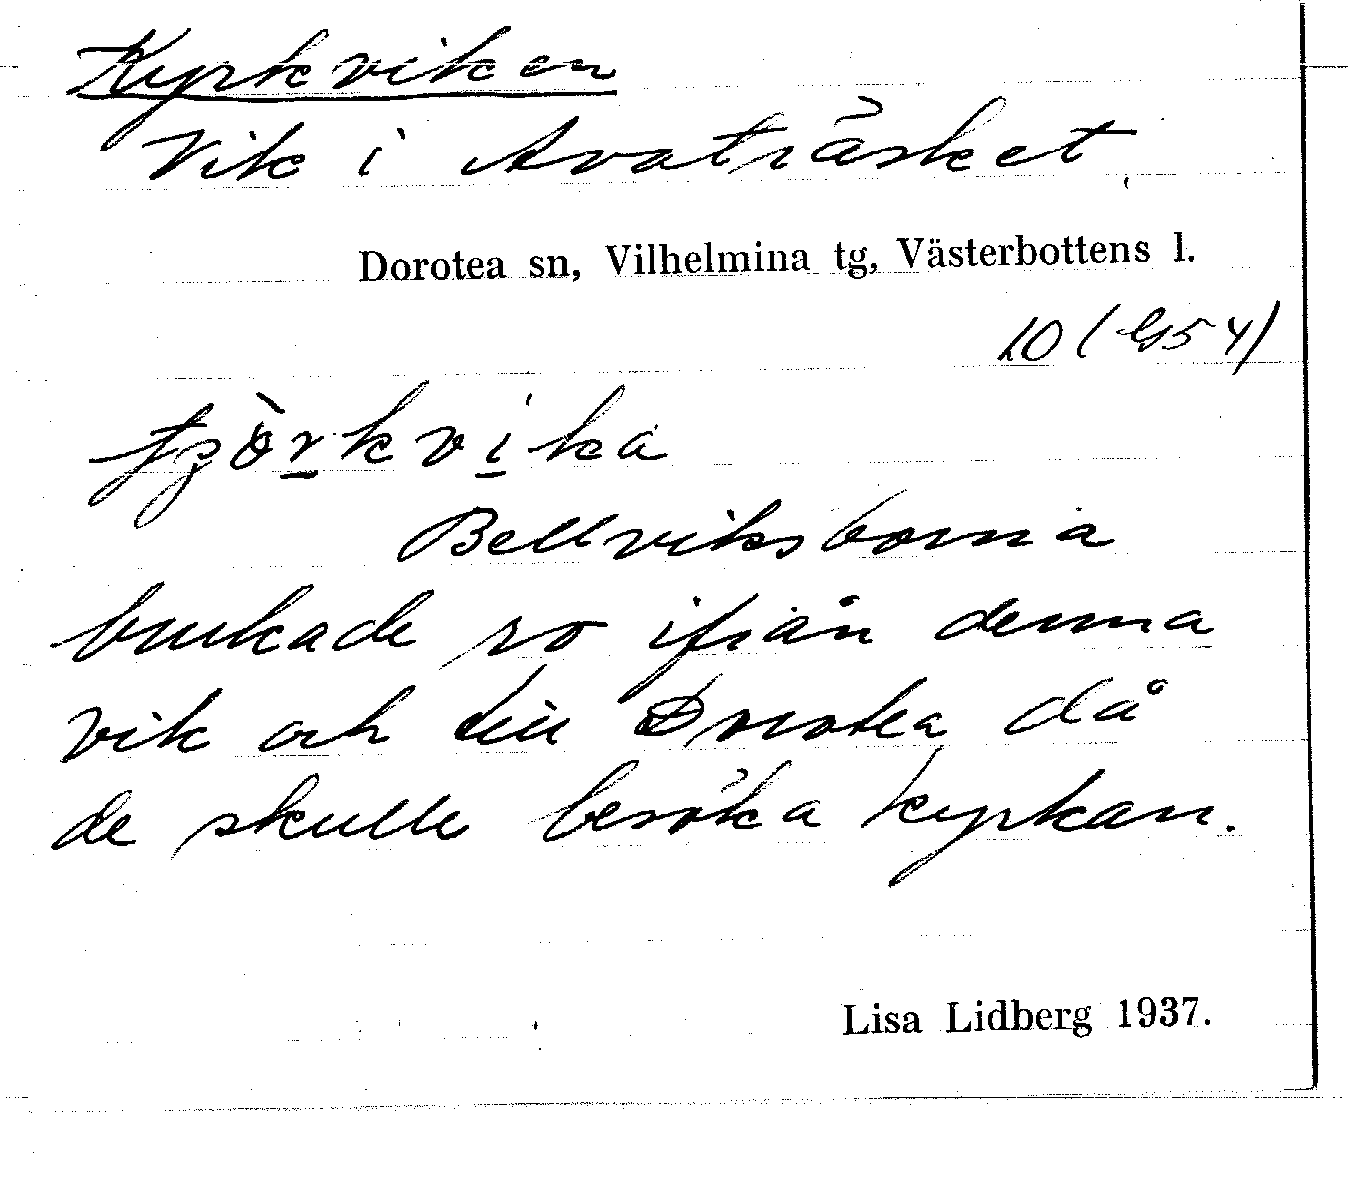 Kyrkviken
Vik i Avaträsket
Dorotea sn, Vilhelmina tg, Västerbottens l.
10 (G54)
Bellviksborna
brukade ro ifrån denna
vik och till Dorotea då
de skulle besöka kyrkan.
Lisa Lidberg 1937.